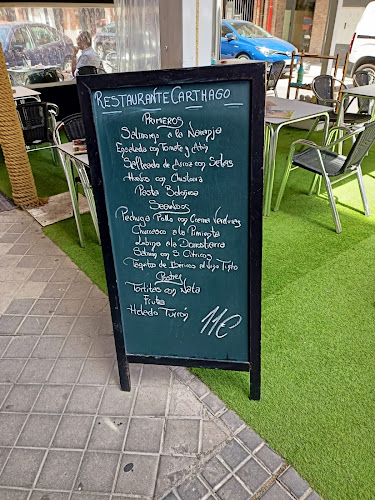 RESTAURANTE CARTHAGO
PRIMEROS
Salmorejo a la Naranja
Ensalada con Tomate y Atún
Salteado de Arroz con Setas
Huevos con Chistorra
Pasta Boloñesa
SEGUNDOS
Pechuga Pollo con Crema Verduras
Churrasco a la Pimienta
Lubina a la Donostiarra
Salmón con S. Cítricos
de Ibérico al vino Tinto
Postres
Tortitas con Nata
Fruta
Helado Turrón
11€